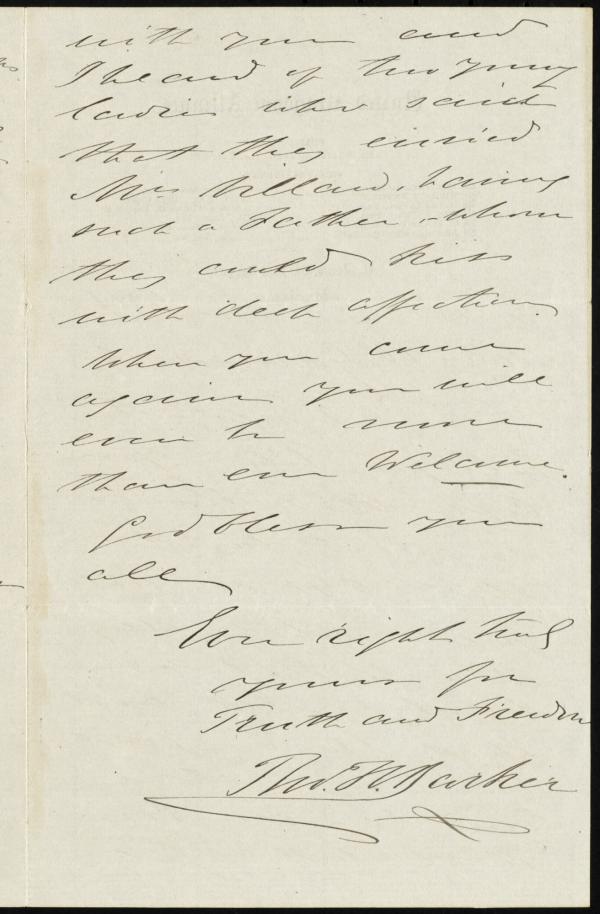 with you and
I heard of two young
ladies who said
that they envied
Mrs Villard, having
such a Father - whom
they could kiss
with deep affection.
When you come
again you will
even be more
than ever Welcome.
God bless you
all
Ever right truly
yours for
Truth and Freedom
Tho. H. Barker